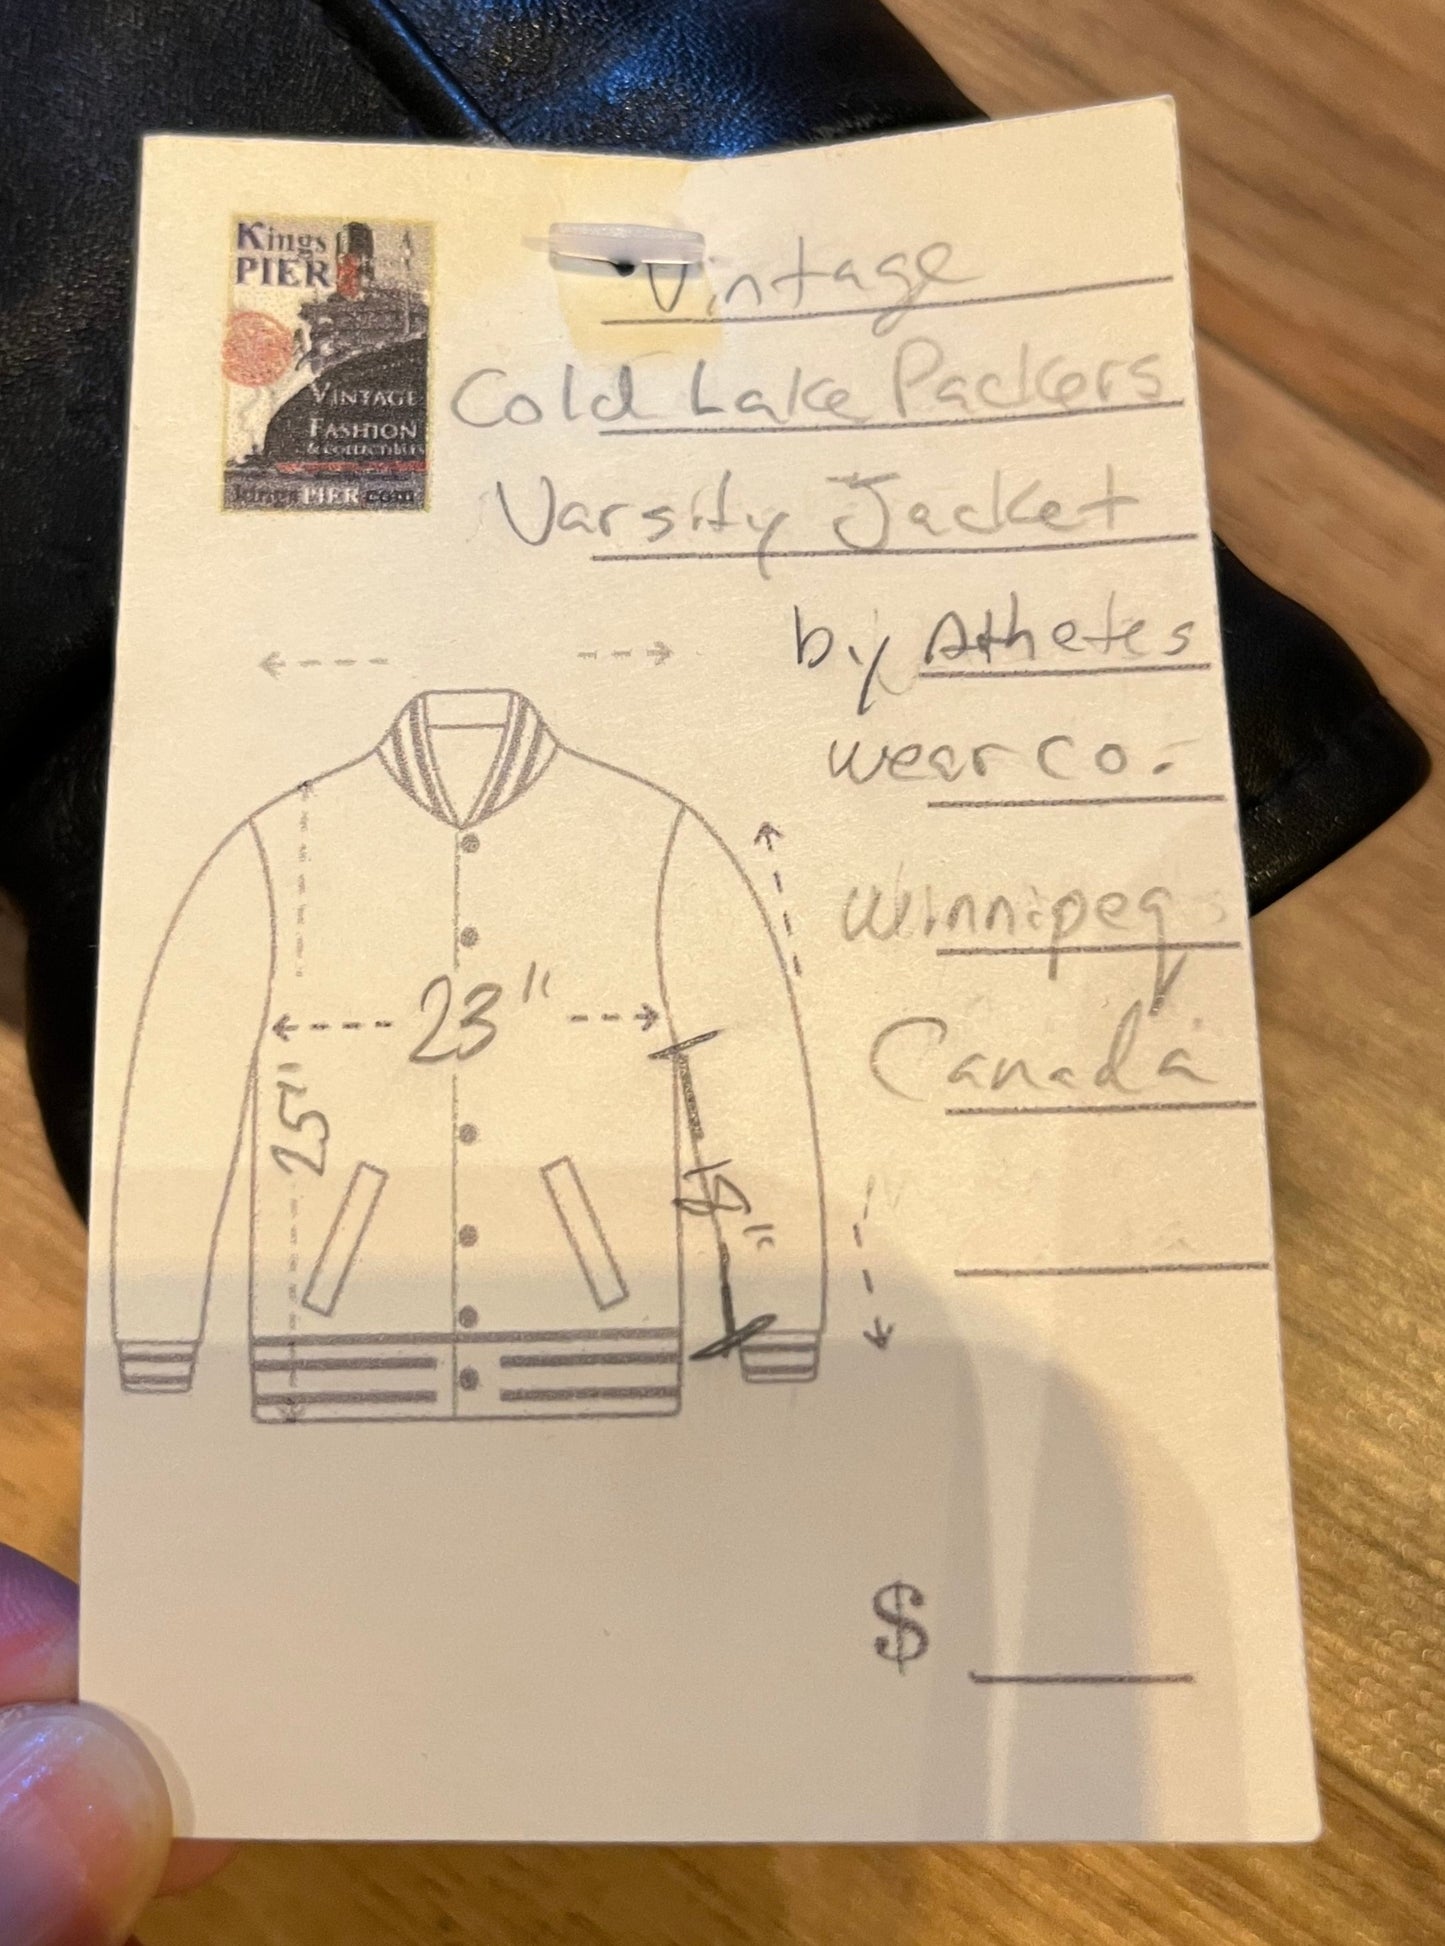 Kings
PIER
VINTAGE
FASHION
& COLLECTIBLES
kingsPIER.com
Vintage
Cold Lake Packers
Varsity Jacket
by Athetes
wear co.
Winnipeg,
Canada
23"
25"
18"
$